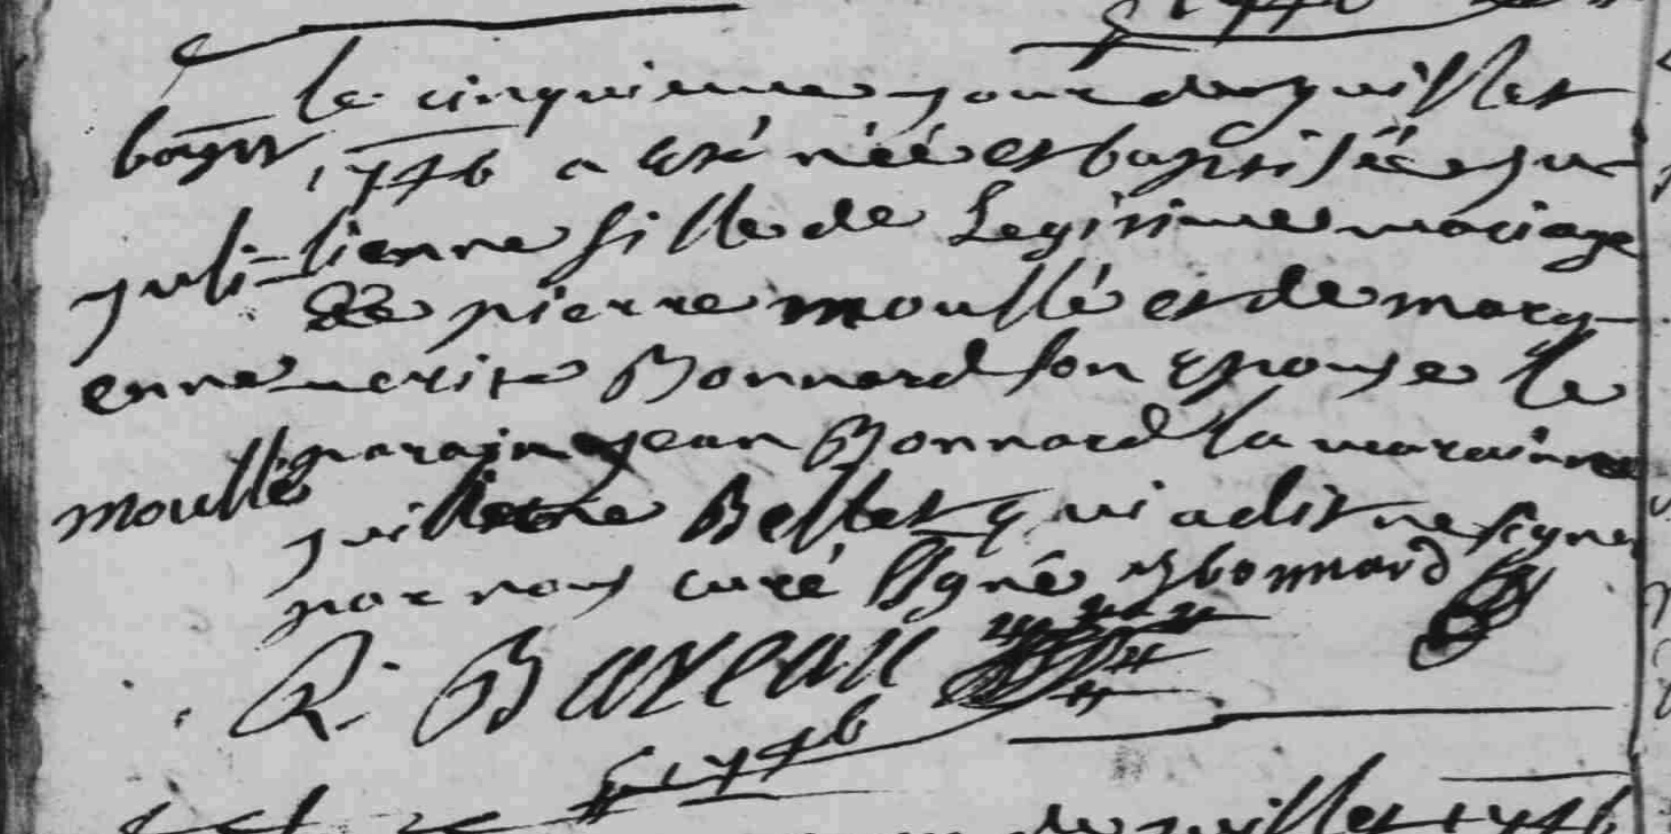 1746
le cinquieme jour de juillet
bapt
1746 a esté néé et baptisée ju
juli
lienne fille de Legitime mariage
de pierre moullé et de mary
enne Bonnard son epouse le
parain jean Bonnard la maraine
moullé
juillienne Bellet qui a dit ne signer
par nous curé signé bonnard
R. Bareau
1746
de juillet 1746